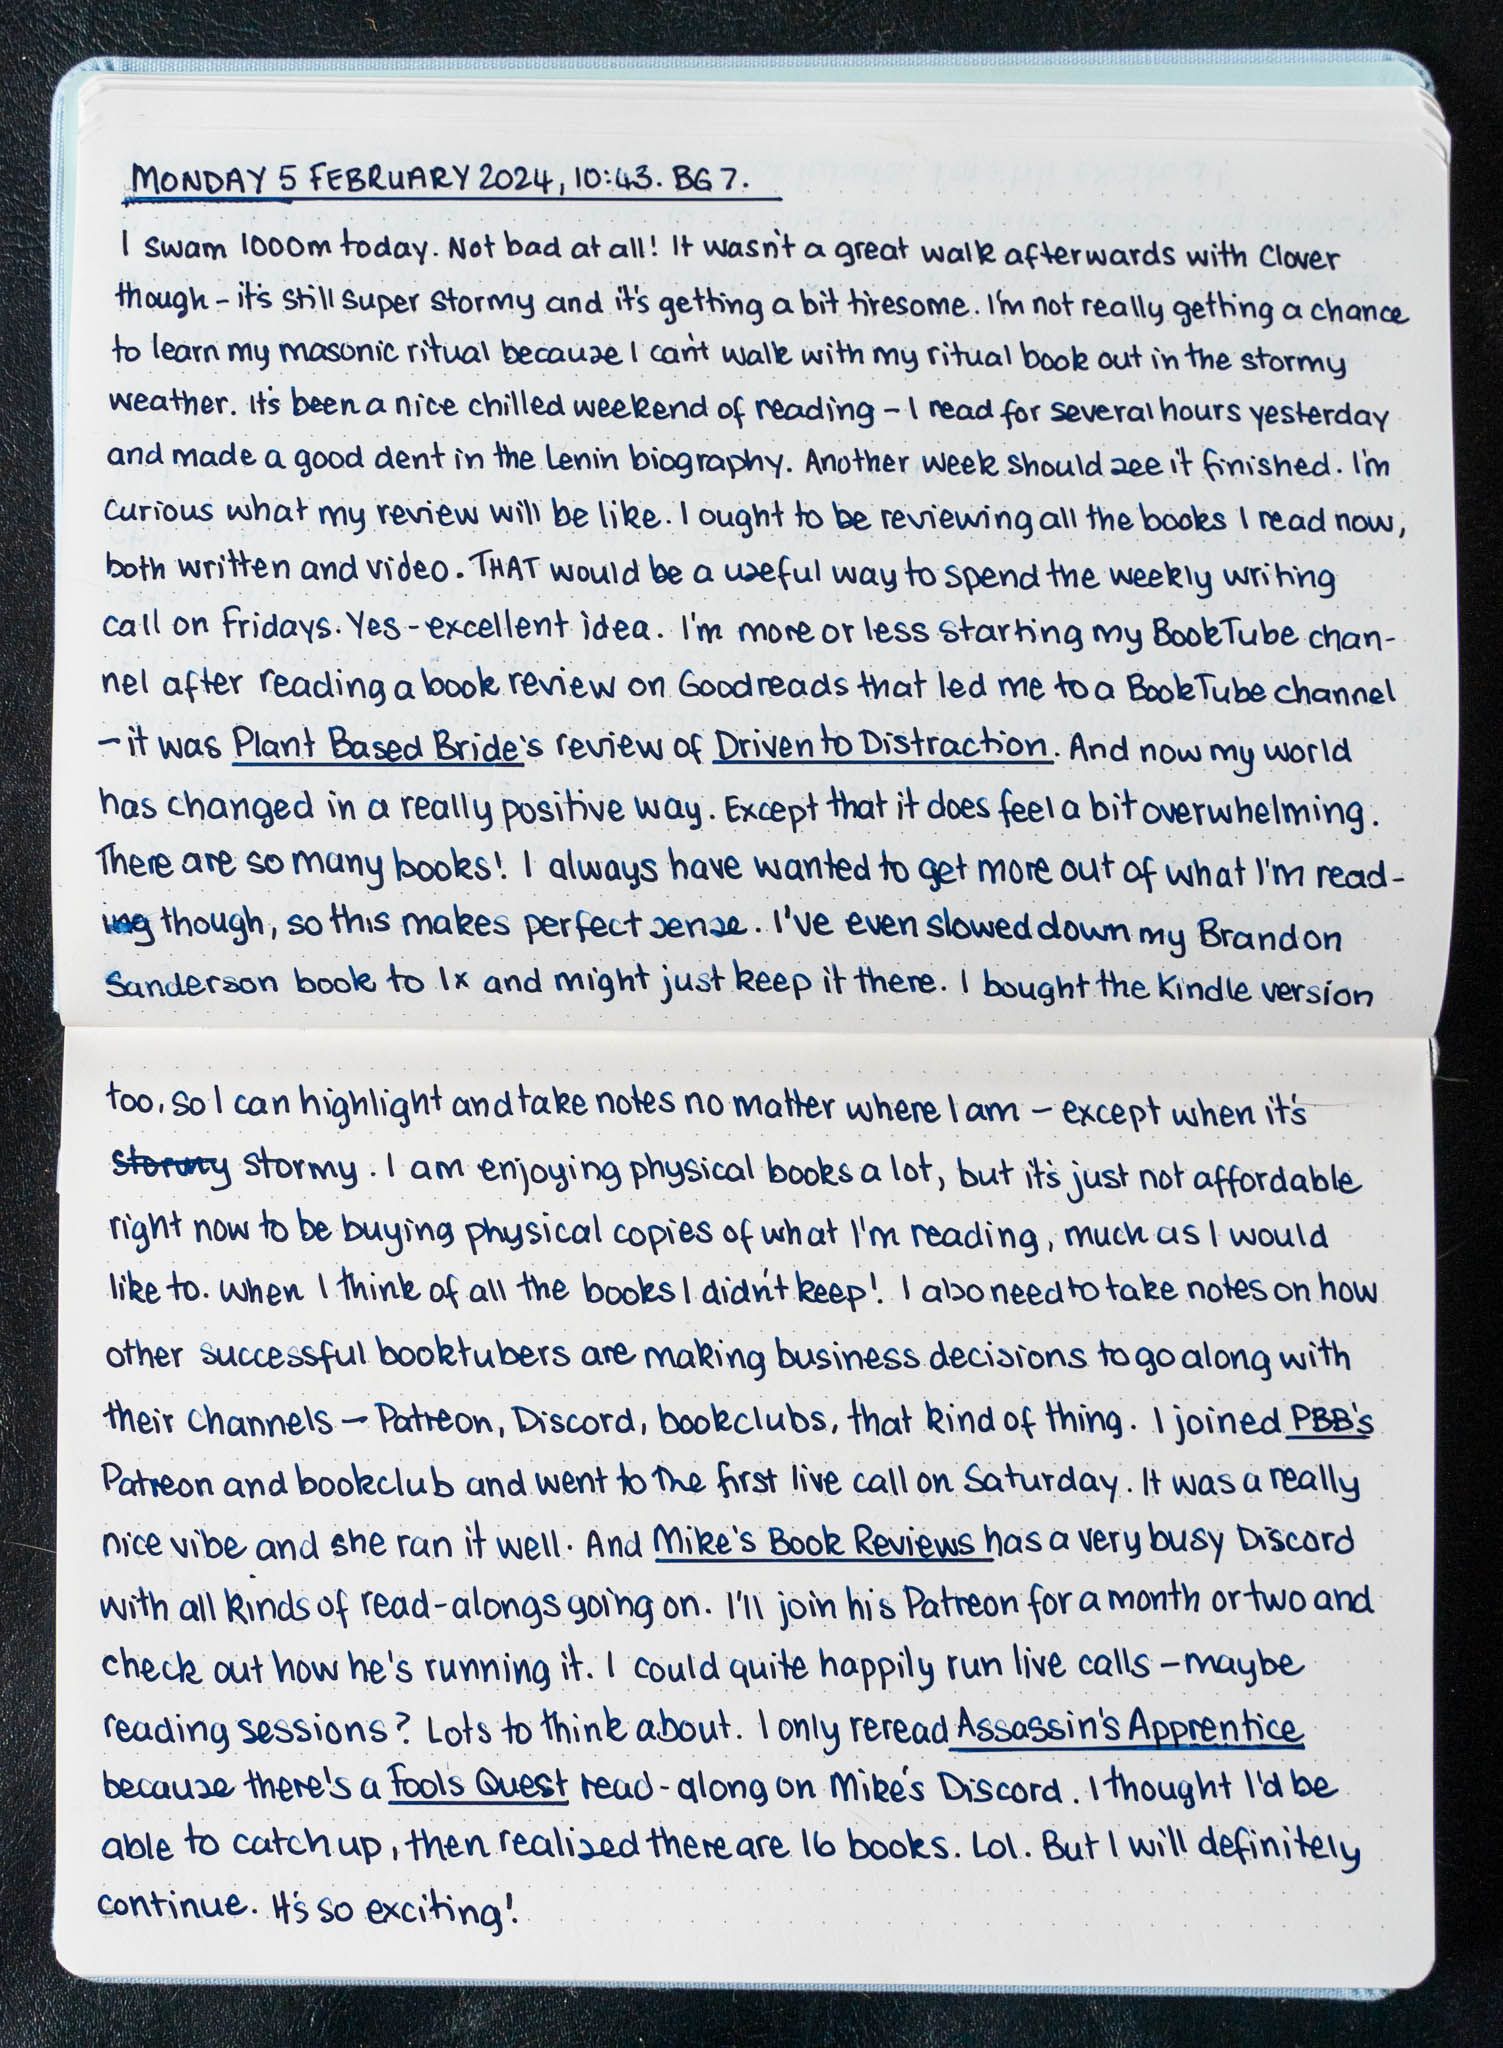 MONDAY 5 FEBRUARY 2024, 10:43. BG 7.
I swam 1000m today. Not bad at all! It wasn't a great walk afterwards with Clover
though - it's still super stormy and it's getting a bit tiresome. I'm not really getting a chance
to learn my masonic ritual because I can't walk with my ritual book out in the stormy
weather. It's been a nice chilled weekend of reading - I read for several hours yesterday
and made a good dent in the Lenin biography. Another week should see it finished. I'm
curious what my review will be like. I ought to be reviewing all the books I read now,
both written and video. THAT would be a useful way to spend the weekly writing
call on Fridays. Yes - excellent idea. I'm more or less starting my BookTube chan-
nel after reading a book review on Goodreads that led me to a BookTube channel
- it was Plant Based Bride's review of Driven to Distraction. And now my world
has changed in a really positive way. Except that it does feel a bit overwhelming.
There are so many books! I always have wanted to get more out of what I'm read-
ing though, so this makes perfect sense. I've even slowed down my Brandon
Sanderson book to 1x and might just keep it there. I bought the Kindle version
too, so I can highlight and take notes no matter where I am - except when it's
stormy stormy. I am enjoying physical books a lot, but it's just not affordable
right now to be buying physical copies of what I'm reading, much as I would
like to. When I think of all the books I didn't keep! I also need to take notes on how
other successful booktubers are making business decisions to go along with
their channels - Patreon, Discord, bookclubs, that kind of thing. I joined PBB's
Patreon and bookclub and went to the first live call on Saturday. It was a really
nice vibe and she ran it well. And Mike's Book Reviews has a very busy Discord
with all kinds of read-alongs going on. I'll join his Patreon for a month or two and
check out how he's running it. I could quite happily run live calls - maybe
reading sessions? Lots to think about. I only reread Assassin's Apprentice
because there's a Fool's Quest read-along on Mike's Discord. I thought I'd be
able to catch up, then realised there are 16 books. Lol. But I will definitely
continue. It's so exciting!